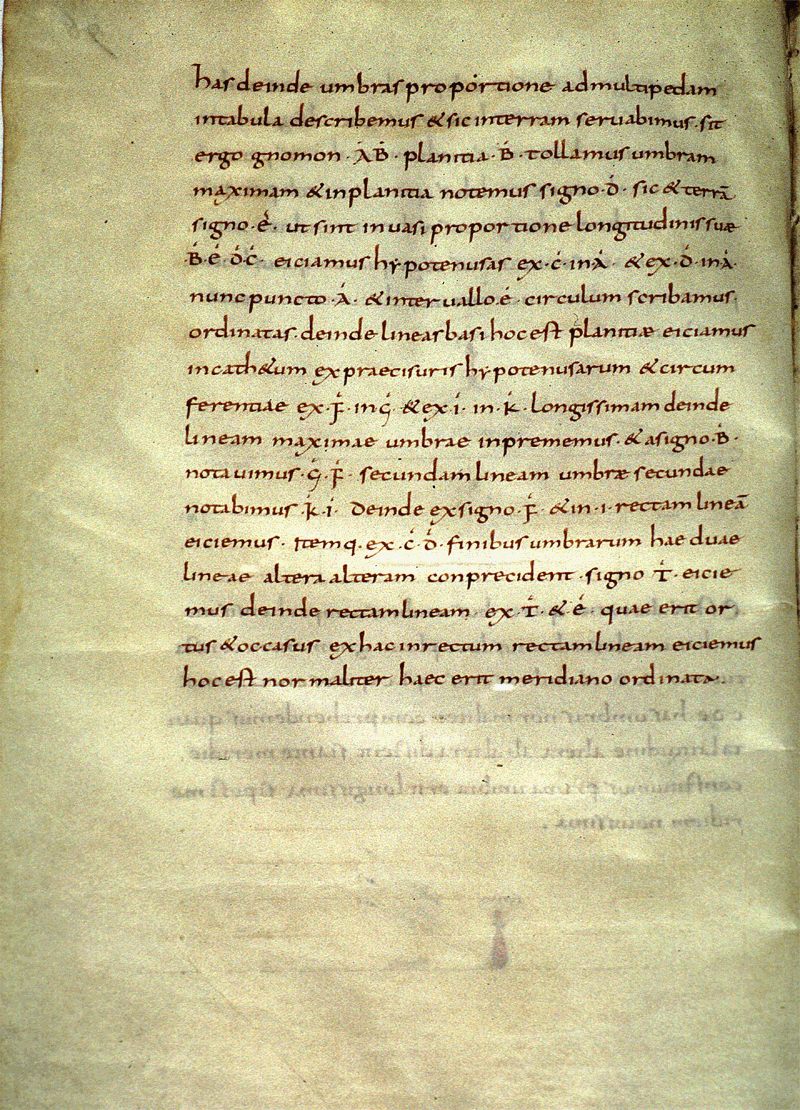 has deinde umbras proportione ad multipedam
intabula describemus & sic interram seruabimus. sit
ergo gnomon · A B · planitia · B · tollamus umbram
maximam & inplanitia notemus signo · D · sic & terrā
signo · E · ut sint inuasi proportione longitudinis suæ
· B · E · D · C · eiciamus hypotenusas ex · C · in A · & ex · D · in A ·
nunc puncto · A · & interuallo · E · circulum scribamus ·
ordinatas. deinde lineas basi hoc est planitiæ eiciamus
in cath&um ex praecisuris hypotenusarum & circum
ferentiae ex · F · in G · & ex · I · in · K · longissimam deinde
lineam maximae umbrae inprememus · & a signo · B ·
notauimus · G · F · secundam lineam umbræ secundae
notabimus · K · I · Deinde ex signo · F · & in · I · rectam lineā
eiciemus · Itemq. ex · C · D · finibus umbrarum hae duae
lineae altera alteram conprecident · signo · T · eicie
mus deinde rectam lineam ex · T · & E · quae erit or
tus & occasus ex hac in rectum rectam lineam eiciemus
hoc est normaliter haec erit meridiano ordinata.